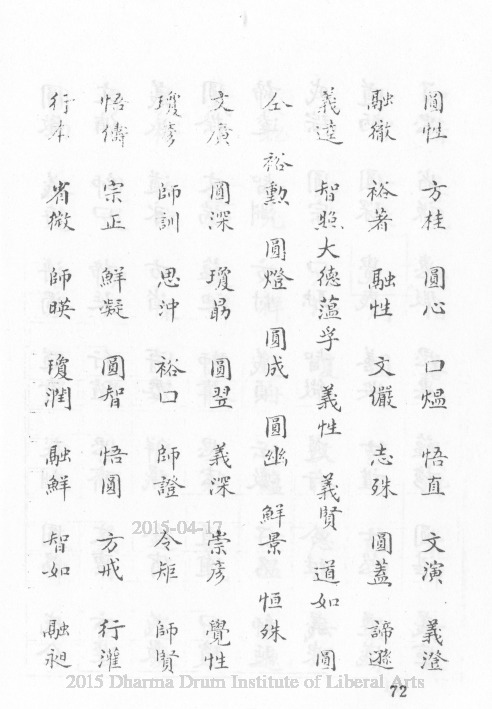 圓性 方桂 圓心 口熅 悟直 文演 義澄
融徹 裕著 融性 文儼 志殊 圓蓋 諦遜
義達 智照大德薀孚 義性 義賢 道如 圓
仝 裕勲 圓燈 圓成 圓幽 鮮景 恒殊
文廣 圓深 瓊勗 圓翌 義深 崇彥 覺性
瓊彥 師訓 思沖 裕口 師證 令矩 師賢
悟儔 宗正 鮮凝 圓智 悟圓 方戒 行灌
行本 省微 師暎 瓊潤 融鮮 智如 融昶
2015-04-17
2015 Dharma Drum Institute of Liberal Arts
72